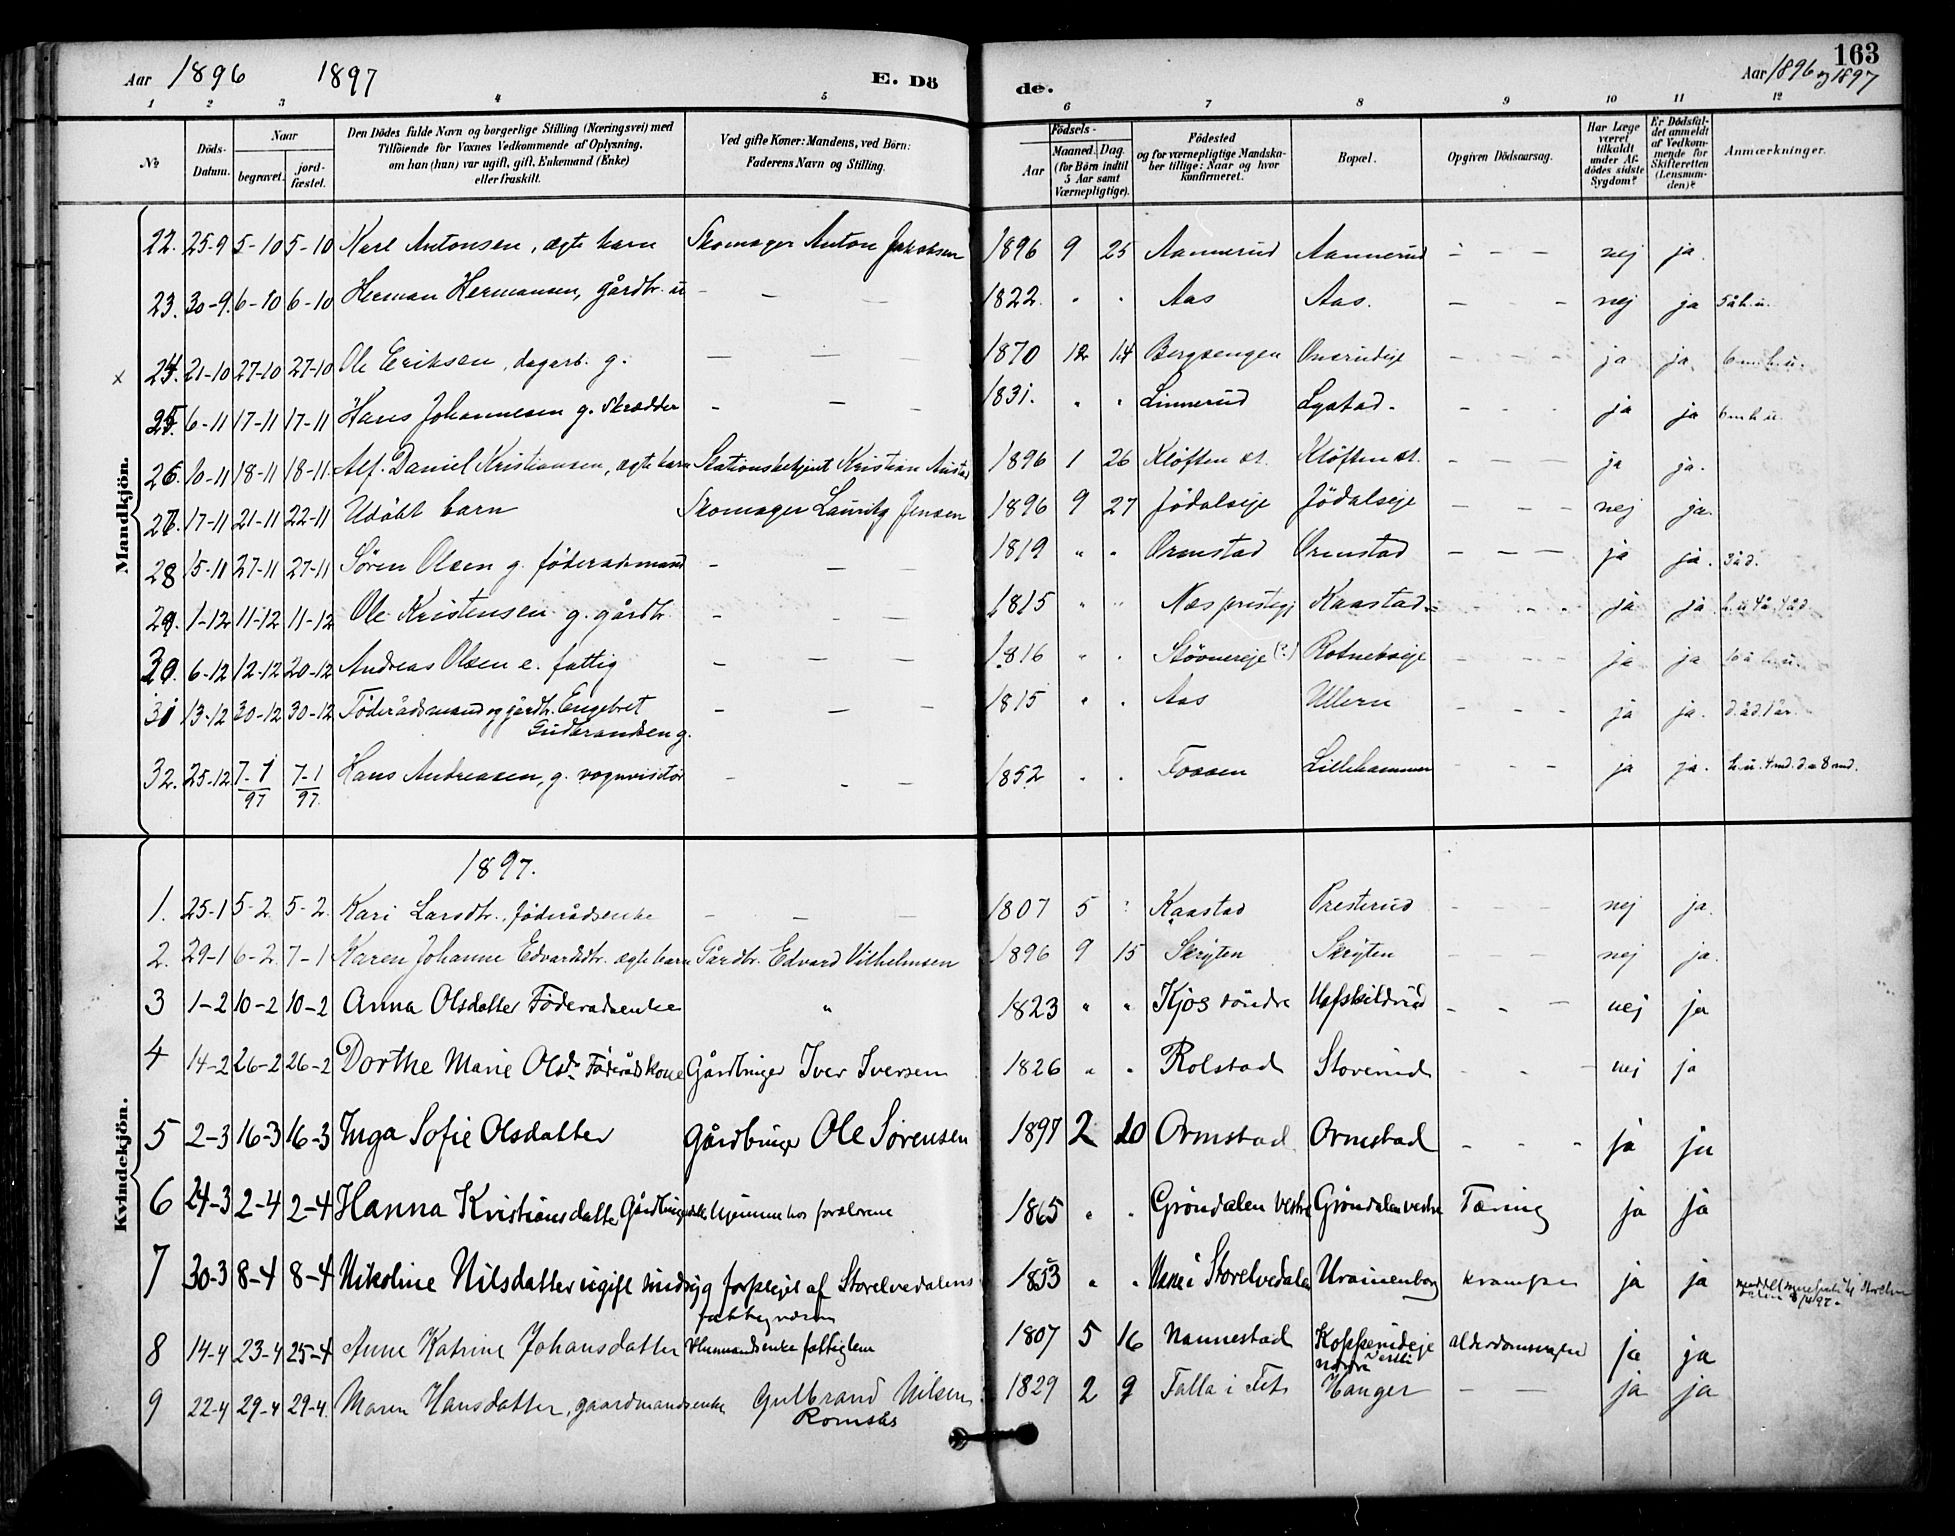 163
Aar 1896 1897 E. Dö de. Aar 1896 og 1897
1 2 3 4 5 6 7 8 9 10 11 12
No Döds-Datum. Naar begravet. jord-fæstet. Den Dödes fulde Navn og borgerlige Stilling (Næringsvei) med Tilföiende for Voxnes Vedkommende af Oplysning, om han (hun) var ugift, gift, Enkemand (Enke) eller fraskilt. Ved gifte Koner: Mandens, ved Börn: Faderens Navn og Stilling. Födsels- Aar Maaned. Dag. (for Börn indtil 5 Aar samt Værnepligtige). Födested og for værnepligtige Mandskaber tillige: Naar og hvor konfirmeret. Bopæl. Opgiven Dödsaarsag. Har Læge været tilkaldt under Afdödes sidste Sygdom? Er Dödsfaldet anmeldt af Vedkommende for Skifteretten (Lensmanden)? Anmærkninger.
Mandkjön.
22. 25-9 5-10 5-10 Karl Antonsen, ægte barn Skomager Anton Jakobsen 1896 9 25 Aannerud Aannerud - - - nej ja.
23. 30-9. 6-10 6-10 Herman Hermansen, gårdbr. u - - - 1822. " " Aas Aas. - - - nej ja 5 å h. u.
x 24. 21-10 27-10 27-10 Ole Eriksen, dagarb. g. - - 1870 12 14 Bergsengen Onsrudeje - - - ja ja. 6 m. h. u.
25. 6-11 17-11 17-11 Hans Johannesen g. Skrædder - - - 1831. " " Linnerud Lystad. - - - ja ja 6 m h u.
26. 10-11 18-11 18-11 Alf Daniel Kristiansen, ægte barn Stationsbetjent Kristian 1896 1 26 Kløften st. Kløften st. - - - ja ja.
27. 17-11 21-11 22-11 Udøbt barn Skomager Lauritz Jensen 1896 9 27 Jødalseje Jödalseje - - - nej ja.
28 15-11 27-11 27-11 Søren Olsen g. føderadsmand - - - 1819 " " Ormstad Ormstad - - - ja ja. 3 å d.
29. 1-12 11-12 11-12 Ole Kristensen g. gårdbr. - - - 1815 " " Næs prestegj Kaastad - - - ja ja h. u. 4 å, 4 å d.
30. 6-12 12-12 20-12 Andreas Olsen e. fattig - - - 1816 " " Støvnereje (?) Rotneseje - - - ja ja 10 å h. u.
31 13-12 30-12 30-12 Föderådsmand og gårdbr. Engebret Gudbrandsen g. - - - 1815 " " Aas Ullern - - - ja ja.
32. 25-12 7-1/97 7-1/97. Hans Andreasen, g. vognvisitør - - - 1852 " " Fossen Lillehammer - - - ja ja. h. u. 4 md. d. a 8 md.
Kvindekjön.
1897.
1. 25-1 5-2. 5-2. Kari Larsdtr., føderådsenke - - - 1807 5 Kaastad Presterud - - - nej ja.
2. 29-1 6-2. 7-1 Karen Johanne Edvardsdtr. ægte barn Gårdbr. Edvard Vilhelmsen 1896 9 15 Skryten Skryten - - - nej ja.
3 1-2 10-2 10-2 Anna Olsdatter Föderadsenke " 1823 " " Kjos söndre Hafskildrud - - - nej ja
4 14-2 26-2 26-2 Dorthe Marie Olsdr Föderådskone Gårdbruger Iver Iversen 1826 " " Rolstad Stoverud - - - nej ja
5 2-3 16-3 16-3 Inga Sofie Olsdatter Gårdbruger Ole Sørensen 1897 2 20 Ormstad Ormstad - - - ja ja
6 24-3 2-4 2-4 Hanna Kristiansdatter hjemme hos forældrene 1865 " " Gröndalen Vestre Gröndalen vestre Tæring ja ja
7 30-3 8-4 8-4 Nikoline Nilsdatter ugift forplejet af Storelvedalens fattigvæsen 1853 " " i Storelvedalen Uranienborg krampe ja ja
8 14-4 23-4 25-4 Anne Katrine Johansdatter fattiglem 1807 5 16 Nannestad Kopperudeje nordre alderdomssvaghed ja ja
9 22-4 29-4 29-4. Maren Hansdatter, gaardmandsenke Gulbrand Nilsen Romsås 1829 2 9 Falla i Fet Hanger - - ja ja